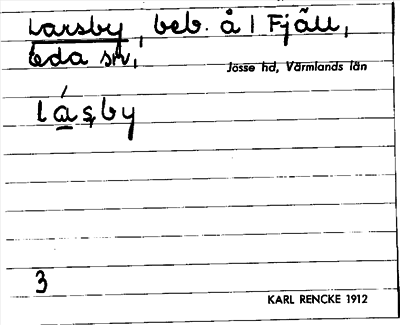 Larsby, beb. å 1 Fjäll,
Eda sn,
Jösse hd, Värmlands län
lá̱şby
3
KARL RENCKE 1912